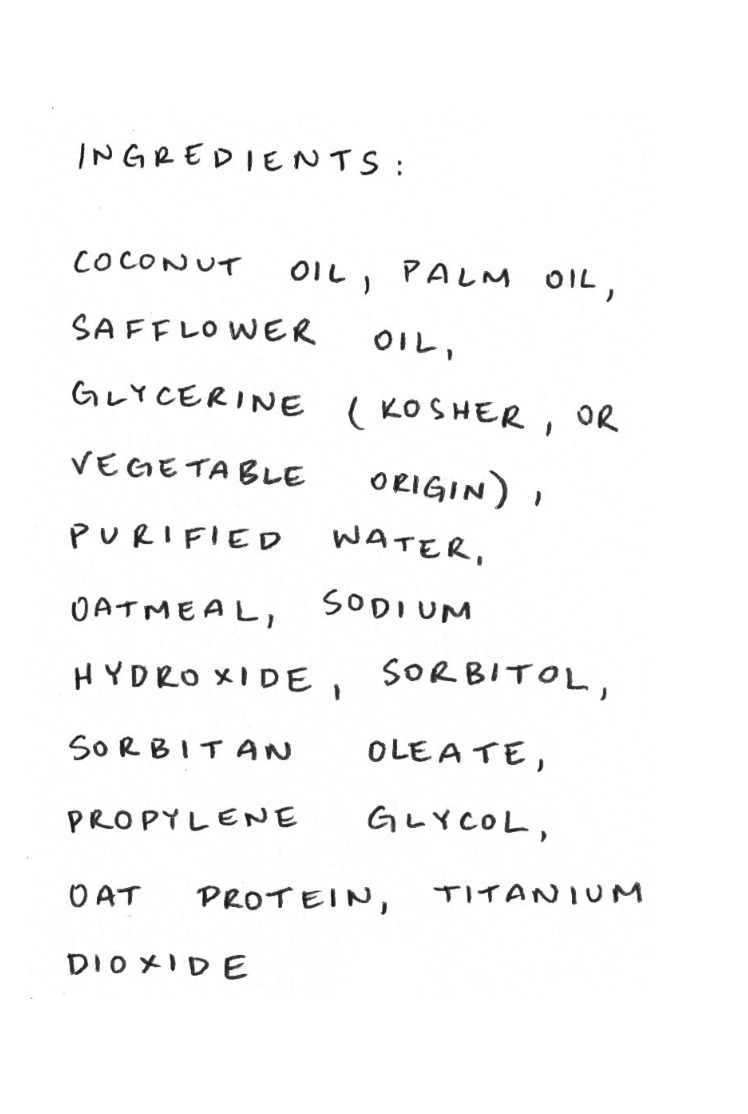 INGREDIENTS:
COCONUT OIL, PALM OIL,
SAFFLOWER OIL,
GLYCERINE (KOSHER, OR
VEGETABLE ORIGIN),
PURIFIED WATER,
OATMEAL, SODIUM
HYDROXIDE, SORBITOL,
SORBITAN OLEATE,
PROPYLENE GLYCOL,
OAT PROTEIN, TITANIUM
DIOXIDE